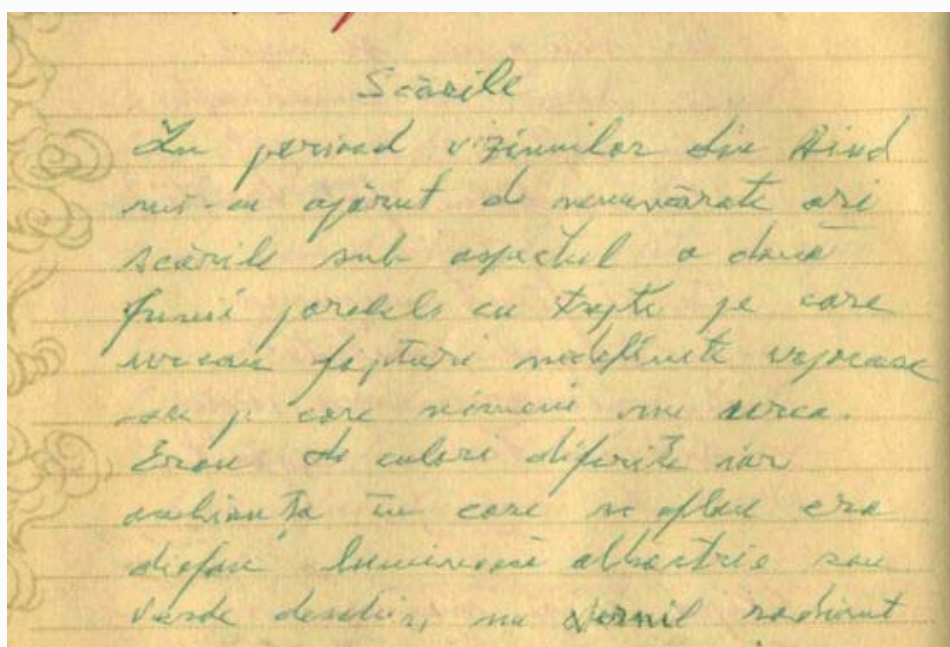 Scările
În perioad viziunilor din Aiud
mi-au apărut de nenumărate ori
scările sub aspectul a două
funii paralele cu trepte pe care
urcau făpturi nedefinite vaporoase
sau pe care nimeni nu urca.
Erau de culori diferite iar
ambianța în care se aflau era
diafan luminoasă albastrie sau
verde deschis, un vernil